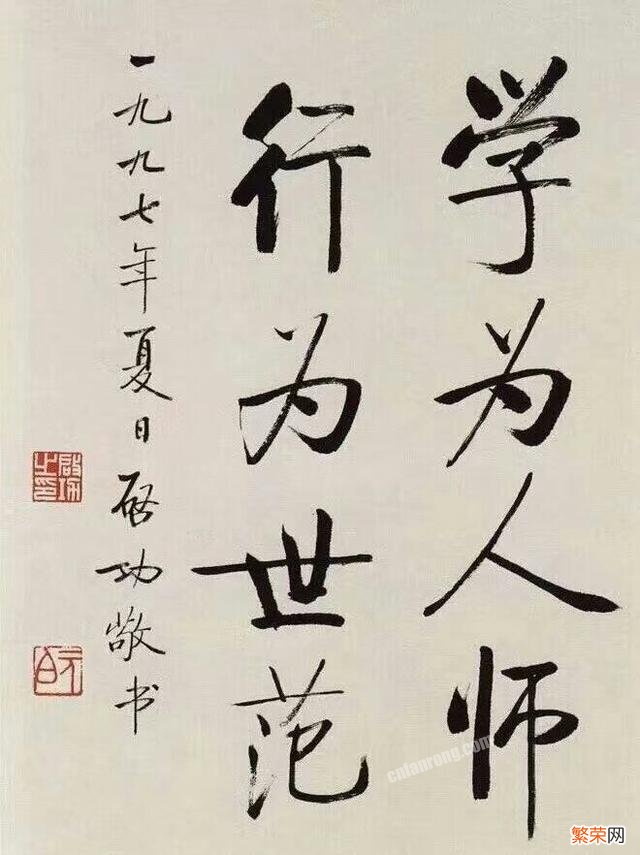 学为人师
行为世范
一九九七年夏日启功敬书
启功之印
元白
cnfanrong.com
繁荣网